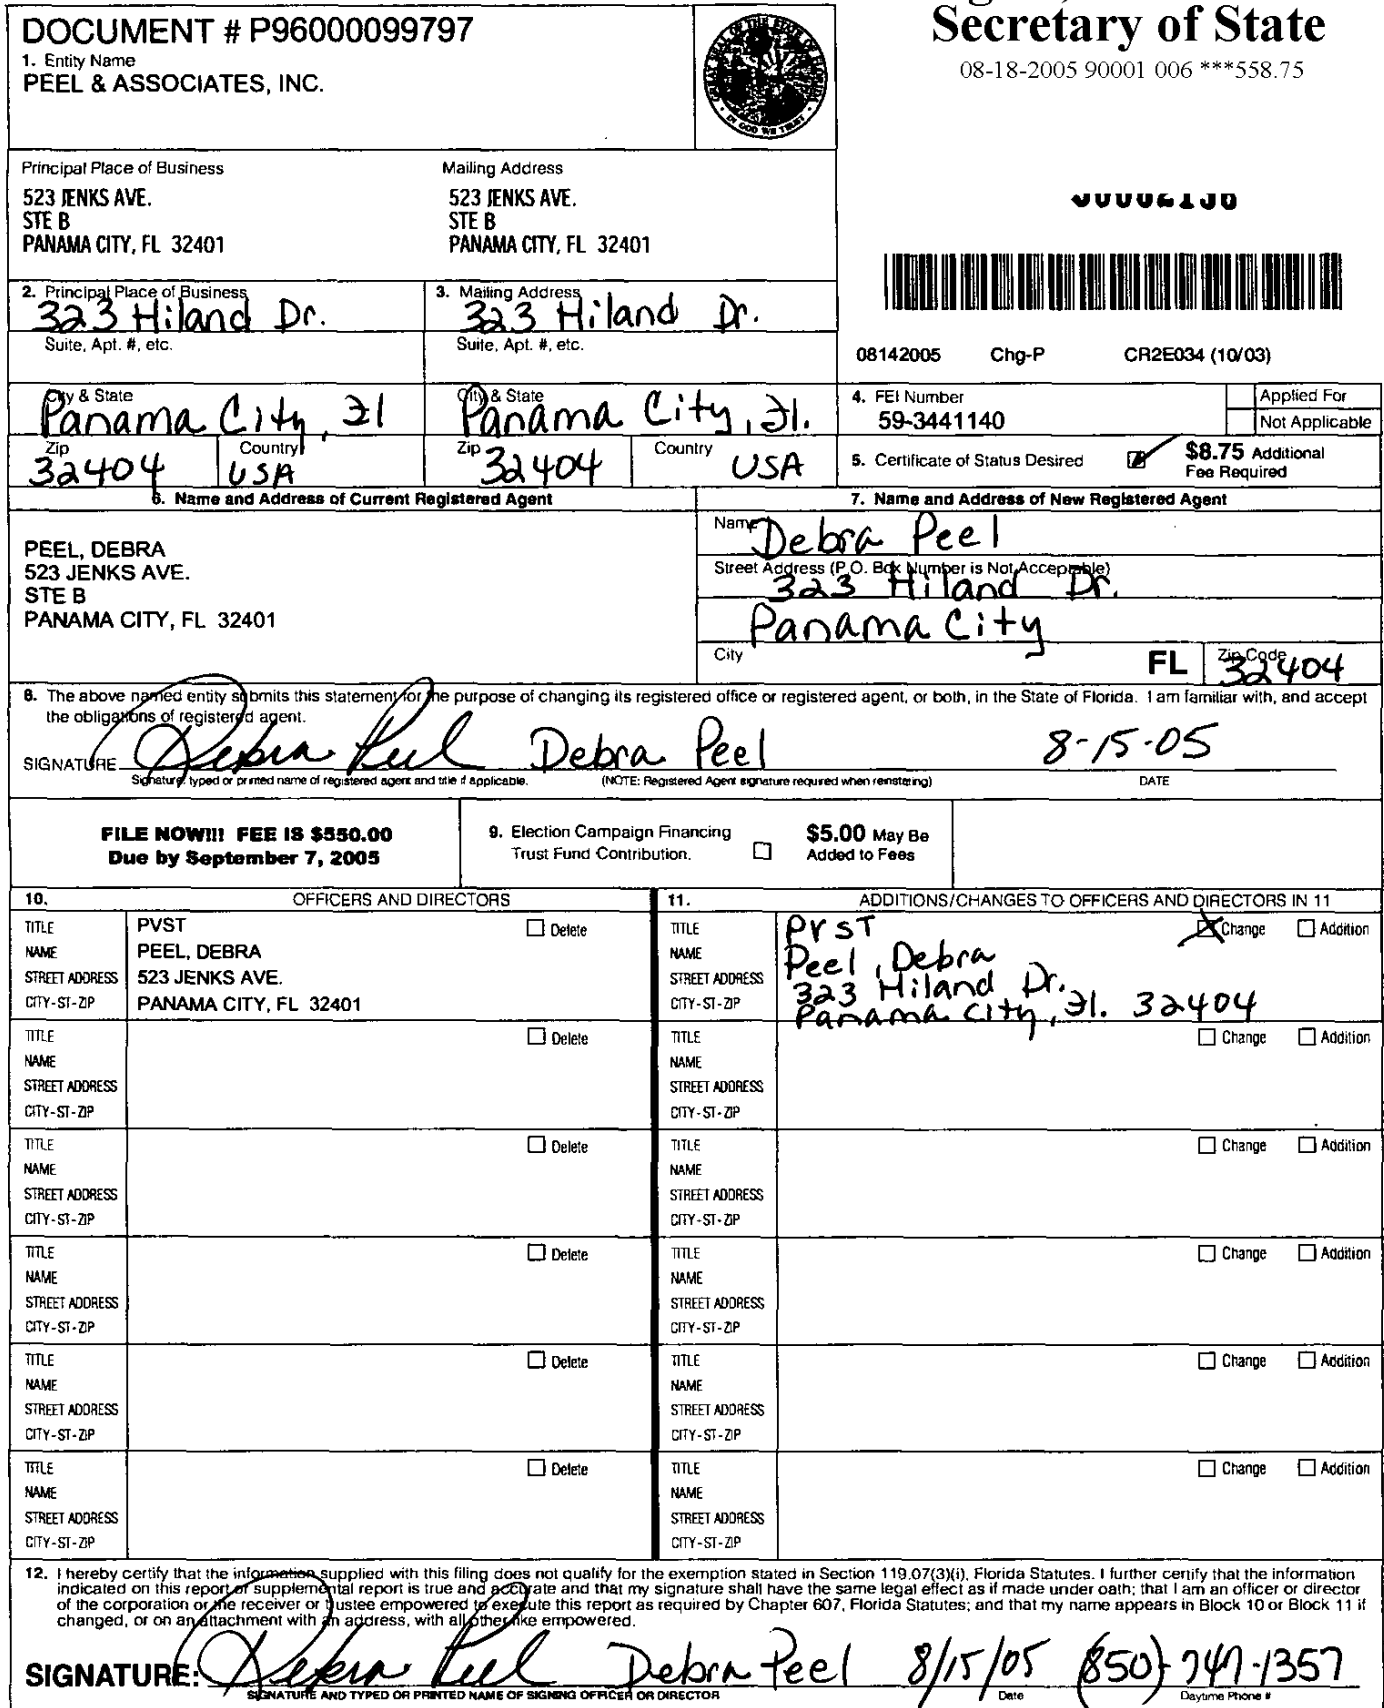 DOCUMENT # P96000099797
1. Entity Name
PEEL & ASSOCIATES, INC.
GREAT SEAL OF THE STATE OF FLORIDA
IN GOD WE TRUST
Secretary of State
08-18-2005 90001 006 ***558.75
Principal Place of Business
523 JENKS AVE.
STE B
PANAMA CITY, FL 32401
Mailing Address
523 JENKS AVE.
STE B
PANAMA CITY, FL 32401
2. Principal Place of Business
323 Hiland Dr.
Suite, Apt. #, etc.
City & State
Panama City, Fl
Zip
32404
Country
USA
3. Mailing Address
323 Hiland Dr.
Suite, Apt. #, etc.
City & State
Panama City, Fl.
Zip
32404
Country
USA
08142005 Chg-P CR2E034 (10/03)
4. FEI Number
59-3441140
Applied For
Not Applicable
5. Certificate of Status Desired
$8.75 Additional
Fee Required
6. Name and Address of Current Registered Agent
PEEL, DEBRA
523 JENKS AVE.
STE B
PANAMA CITY, FL 32401
7. Name and Address of New Registered Agent
Name
Debra Peel
Street Address (P.O. Box Number is Not Acceptable)
323 Hiland Dr.
Panama City
City
FL
Zip Code
32404
8. The above named entity submits this statement for the purpose of changing its registered office or registered agent, or both, in the State of Florida. I am familiar with, and accept
the obligations of registered agent.
SIGNATURE Debra Peel Debra Peel 8-15-05
Signature, typed or printed name of registered agent and title if applicable. (NOTE: Registered Agent signature required when reinstating) DATE
FILE NOW!!! FEE IS $550.00
Due by September 7, 2005
9. Election Campaign Financing
Trust Fund Contribution.
$5.00 May Be
Added to Fees
10. OFFICERS AND DIRECTORS
TITLE PVST Delete
NAME PEEL, DEBRA
STREET ADDRESS 523 JENKS AVE.
CITY-ST-ZIP PANAMA CITY, FL 32401
TITLE Delete
NAME
STREET ADDRESS
CITY-ST-ZIP
TITLE Delete
NAME
STREET ADDRESS
CITY-ST-ZIP
TITLE Delete
NAME
STREET ADDRESS
CITY-ST-ZIP
TITLE Delete
NAME
STREET ADDRESS
CITY-ST-ZIP
TITLE Delete
NAME
STREET ADDRESS
CITY-ST-ZIP
11. ADDITIONS/CHANGES TO OFFICERS AND DIRECTORS IN 11
TITLE PVST Change Addition
NAME Peel, Debra
STREET ADDRESS 323 Hiland Dr.
CITY-ST-ZIP Panama City, Fl. 32404
TITLE Change Addition
NAME
STREET ADDRESS
CITY-ST-ZIP
TITLE Change Addition
NAME
STREET ADDRESS
CITY-ST-ZIP
TITLE Change Addition
NAME
STREET ADDRESS
CITY-ST-ZIP
TITLE Change Addition
NAME
STREET ADDRESS
CITY-ST-ZIP
TITLE Change Addition
NAME
STREET ADDRESS
CITY-ST-ZIP
12. I hereby certify that the information supplied with this filing does not qualify for the exemption stated in Section 119.07(3)(i), Florida Statutes. I further certify that the information
indicated on this report or supplemental report is true and accurate and that my signature shall have the same legal effect as if made under oath; that I am an officer or director
of the corporation or the receiver or trustee empowered to execute this report as required by Chapter 607, Florida Statutes; and that my name appears in Block 10 or Block 11 if
changed, or on an attachment with an address, with all other like empowered.
SIGNATURE: Debra Peel Debra Peel 8/15/05 (850)-747-1357
SIGNATURE AND TYPED OR PRINTED NAME OF SIGNING OFFICER OR DIRECTOR Date Daytime Phone #